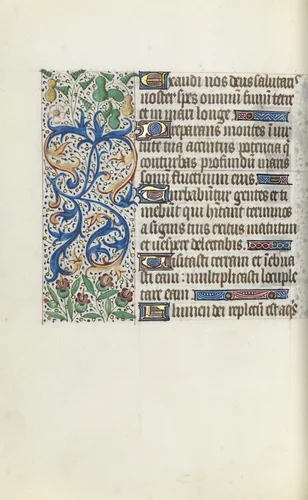 Exaudi nos deus salutaris
noster spes omniũ finiũ terre
et in mari longe.
Preparans montes in uir
tute tua accintus potencia q̃
conturbas profundũ maris
sonũ fluctuum eius.
Turbabũtur gentes et ti
mebũt qui hitant terminos
a signis tuis exitus matutini
et uespere delectabis.
Uisitasti terram et inebria
sti eam: multiplicasti locuple
tare eam
Flumen dei repletũ est aqs